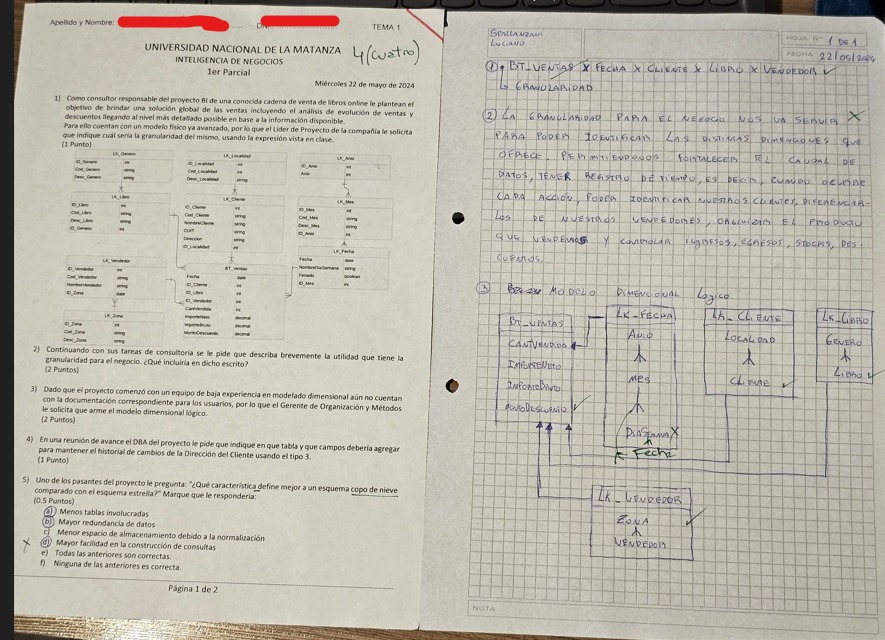 Apellido y Nombre:
TEMA 1
UNIVERSIDAD NACIONAL DE LA MATANZA
4 (cuatro)
INTELIGENCIA DE NEGOCIOS
1er Parcial
Miércoles 22 de mayo de 2024
1) Como consultor responsable del proyecto BI de una conocida cadena de venta de libros online le plantean el
objetivo de brindar una solución global de las ventas incluyendo el análisis de evolución de ventas y
descuentos llegando al nivel más detallado posible en base a la información disponible.
Para ello cuentan con un modelo físico ya avanzado, por lo que el Líder de Proyecto de la compañía le solicita
que indique cuál sería la granularidad del mismo, usando la expresión vista en clase.
(1 Punto)
LK_Genero
ID_Genero int
Cod_Genero string
Desc_Genero string
LK_Localidad
ID_Localidad int
Cod_Localidad string
Desc_Localidad string
LK_Anio
ID_Anio int
Anio int
LK_Libro
ID_Libro int
Cod_Libro string
Desc_Libro string
ID_Genero int
LK_Cliente
ID_Cliente int
Cod_Cliente string
NombreCliente string
CUIT string
Direccion string
ID_Localidad int
LK_Mes
ID_Mes int
Cod_Mes string
Desc_Mes string
ID_Anio int
LK_Fecha
Fecha date
NombreDiaSemana string
Feriado boolean
ID_Mes int
LK_Vendedor
ID_Vendedor int
Cod_Vendedor string
NombreVendedor string
ID_Zona date
BT_Ventas
Fecha date
ID_Cliente int
ID_Libro int
ID_Vendedor int
CantVendida int
ImporteNeto decimal
ImporteBruto decimal
MontoDescuento decimal
LK_Zona
ID_Zona int
Cod_Zona string
Desc_Zona string
2) Continuando con sus tareas de consultoría se le pide que describa brevemente la utilidad que tiene la
granularidad para el negocio. ¿Qué incluiría en dicho escrito?
(2 Puntos)
3) Dado que el proyecto comenzó con un equipo de baja experiencia en modelado dimensional aún no cuentan
con la documentación correspondiente para los usuarios, por lo que el Gerente de Organización y Métodos
le solicita que arme el modelo dimensional lógico.
(2 Puntos)
4) En una reunión de avance el DBA del proyecto le pide que indique en que tabla y que campos debería agregar
para mantener el historial de cambios de la Dirección del Cliente usando el tipo 3.
(1 Punto)
5) Uno de los pasantes del proyecto le pregunta: "¿Qué característica define mejor a un esquema copo de nieve
comparado con el esquema estrella?" Marque que le respondería:
(0.5 Puntos)
a) Menos tablas involucradas
b) Mayor redundancia de datos
c) Menor espacio de almacenamiento debido a la normalización
X d) Mayor facilidad en la construcción de consultas
e) Todas las anteriores son correctas.
f) Ninguna de las anteriores es correcta.
Página 1 de 2
SPALLANZANI
LUCIANO
HOJA Nº 1 DE 1
FECHA 22/05/2024
① BT_VENTAS X FECHA X CLIENTE X LIBRO X VENDEDOR ✓
↳ GRANULARIDAD
② LA GRANULARIDAD PARA EL NEGOCIO NOS VA SERVIR X
PARA PODER IDENTIFICAR LAS DISTINTAS DIMENSIONES QUE
OFRECE, PERMITIENDONOS FORTALECER EL CAUDAL DE
DATOS, TENER REGISTRO DE TIEMPO, ES DECIR, CUANDO OCURRE
CADA ACCIÓN, PODER IDENTIFICAR NUESTROS CLIENTES, DIFERENCIAR-
LOS DE NUESTROS VENDEDORES, ORGANIZAR EL PRODUCTO
QUE VENDEMOS Y CONTROLAR INGRESOS, EGRESOS, STOCKS, DES-
CUENTOS.
③ MODELO DIMENCIONAL Logico
BT_VENTAS
CANTVENDIDA
IMPORTENETO
IMPORTEBRUTO
MONTODESCUENTO ✓
LK_FECHA
ANIO
MES
DIASEMANA X
Fecha
LK_CLIENTE
LOCALIDAD
CLIENTE ✓
LK_LIBRO
GENERO
LIBRO ✓
LK_VENDEDOR
ZONA ✓
VENDEDOR
NOTA